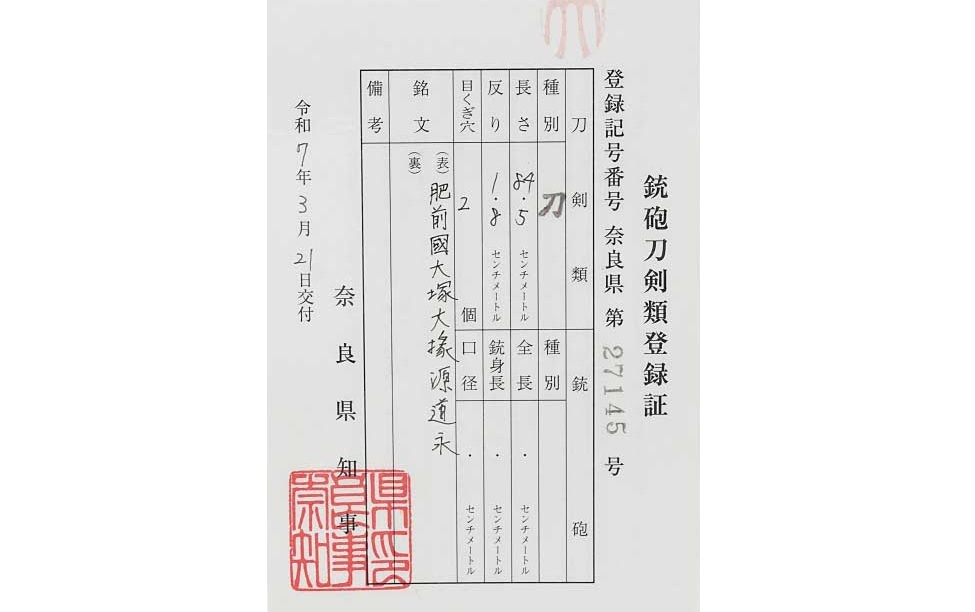 銃砲刀剣類登録証
登録記号番号 奈良県 第 27145 号
刀剣類
銃砲
種別 刀
種別
長さ 84.5 センチメートル
全長 ・ センチメートル
反り 1.8 センチメートル
銃身長 ・ センチメートル
目くぎ穴 2 個
口径 ・ センチメートル
銘文
(表) 肥前國大塚大掾源道永
(裏)
備考
令和7年3月21日交付
奈良県知事